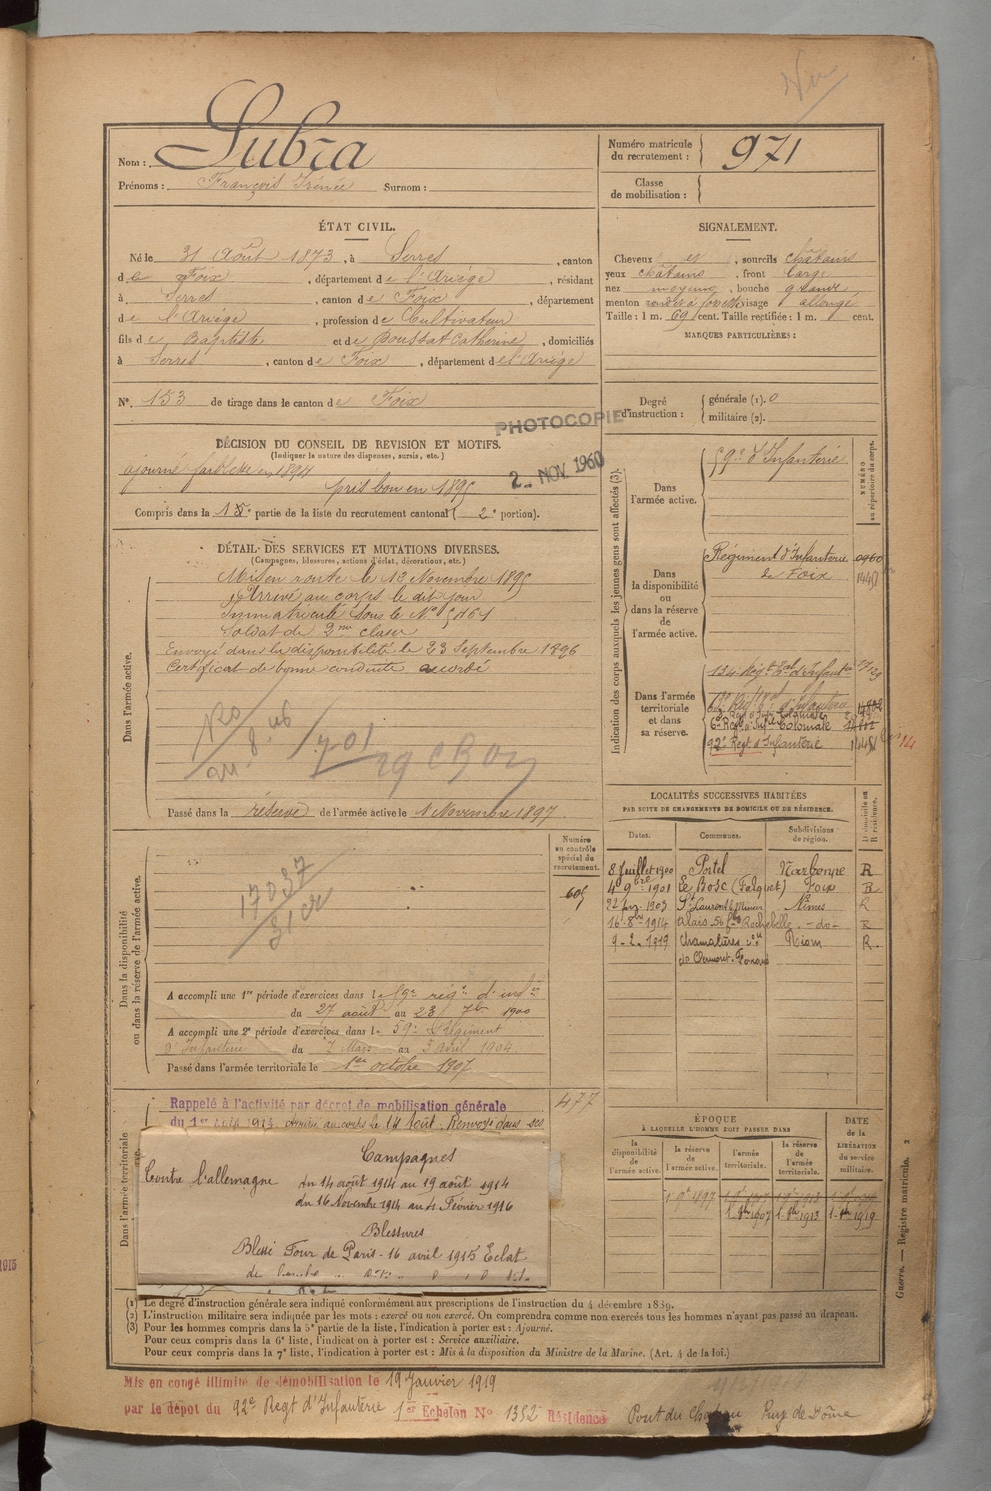 Nom : Lubra
Prénoms : François Irénée Surnom :
Numéro matricule du recrutement : 971
Classe de mobilisation :
ÉTAT CIVIL.
Né le 31 Août 1873, à Serres, canton
de Foix, département de l'Ariège, résidant
à Serres, canton de Foix, département
de l'Ariège, profession de Cultivateur
fils de Baptiste et de Boussat Catherine, domiciliés
à Serres, canton de Foix, département de l'Ariège
N°. 153 de tirage dans le canton de Foix
SIGNALEMENT.
Cheveux et, sourcils châtains
yeux châtains, front large
nez moyen, bouche grande
menton rond à fossette visage allongé
Taille : 1 m. 69 cent. Taille rectifiée : 1 m. cent.
MARQUES PARTICULIÈRES :
Degré d'instruction : générale (1). 0
militaire (2).
PHOTOCOPIE
2 - NOV. 1960
DÉCISION DU CONSEIL DE REVISION ET MOTIFS.
(Indiquer la nature des dispenses, sursis, etc.)
ajourné faiblesse en 1894
pris bon en 1895
Compris dans la 1e partie de la liste du recrutement cantonal ( 2e portion).
DÉTAIL DES SERVICES ET MUTATIONS DIVERSES.
(Campagnes, blessures, actions d'éclat, décorations, etc.)
Dans l'armée active.
Mis en route le 13 Novembre 1895
Arrivé au corps le dit jour
Immatriculé sous le N° 5461
Soldat de 2me classe
Envoyé dans la disponibilité le 23 Septembre 1896
Certificat de bonne conduite accordé
Passé dans la réserve de l'armée active le 1 Novembre 1897
Indication des corps auxquels les jeunes gens sont affectés (3).
NUMÉRO au répertoire du corps.
Dans l'armée active.
59e d'Infanterie
Dans la disponibilité ou dans la réserve de l'armée active.
Régiment d'Infanterie de Foix
0960
1440
Dans l'armée territoriale et dans sa réserve.
134 Régt Tal d'Infantie
6e Régt d'Infie Coloniale
92e Regt d'Infanterie
LOCALITÉS SUCCESSIVES HABITÉES
PAR SUITE DE CHANGEMENTS DE DOMICILE OU DE RÉSIDENCE.
Dates. Communes. Subdivisions de région. D domicile ou R résidence.
8 Juillet 1900 Portel Narbonne R
4 9bre 1901 Le Bosc (Falguet) Foix R
22 1903 St Laurent le Minier Nimes R
16 - 8bre 1914 Alais 56 fbg Rochebelle - do - R
9 - 2 - 1919 Chamalières Riom R
Clermont-Ferrand
Dans la disponibilité ou dans la réserve de l'armée active.
Numéro au contrôle spécial du recrutement.
605
17037
A accompli une 1re période d'exercices dans le 59e régt d'infie
du 27 août au 23 7bre 1900
A accompli une 2e période d'exercices dans le 59e Régiment
d'Infanterie du 7 Mars au 3 Avril 1904
Passé dans l'armée territoriale le 1er octobre 1907
Dans l'armée territoriale
Rappelé à l'activité par décret de mobilisation générale
477
Arrivé au corps le 14 Août. Renvoyé dans ses
Campagnes
Contre l'allemagne du 14 août 1914 au 19 août 1914
du 16 Novembre 1914 au 4 Février 1916
Blessures
Blessé Four de Paris - 16 avril 1915 Eclat
ÉPOQUE
À LAQUELLE L'HOMME DOIT PASSER DANS
la disponibilité de l'armée active.
la réserve de l'armée active.
l'armée territoriale.
la réserve de l'armée territoriale.
DATE de la LIBÉRATION du service militaire.
1-8bre 1907 1-8bre 1913 1-8bre 1919
(1) Le degré d'instruction générale sera indiqué conformément aux prescriptions de l'instruction du 4 décembre 1889.
(2) L'instruction militaire sera indiquée par les mots : exercé ou non exercé. On comprendra comme non exercés tous les hommes n'ayant pas passé au drapeau.
(3) Pour les hommes compris dans la 5e partie de la liste, l'indication à porter est : Ajourné.
Pour ceux compris dans la 6e liste, l'indication à porter est : Service auxiliaire.
Pour ceux compris dans la 7e liste, l'indication à porter est : Mis à la disposition du Ministre de la Marine. (Art. 4 de la loi.)
Guerre. — Registre matricule. 2
Mis en congé illimité de démobilisation le 19 Janvier 1919
par le dépot du 92e Regt d'Infanterie 1er Echelon N° 1352 Résidence Pont du Chateau Puy de Dôme